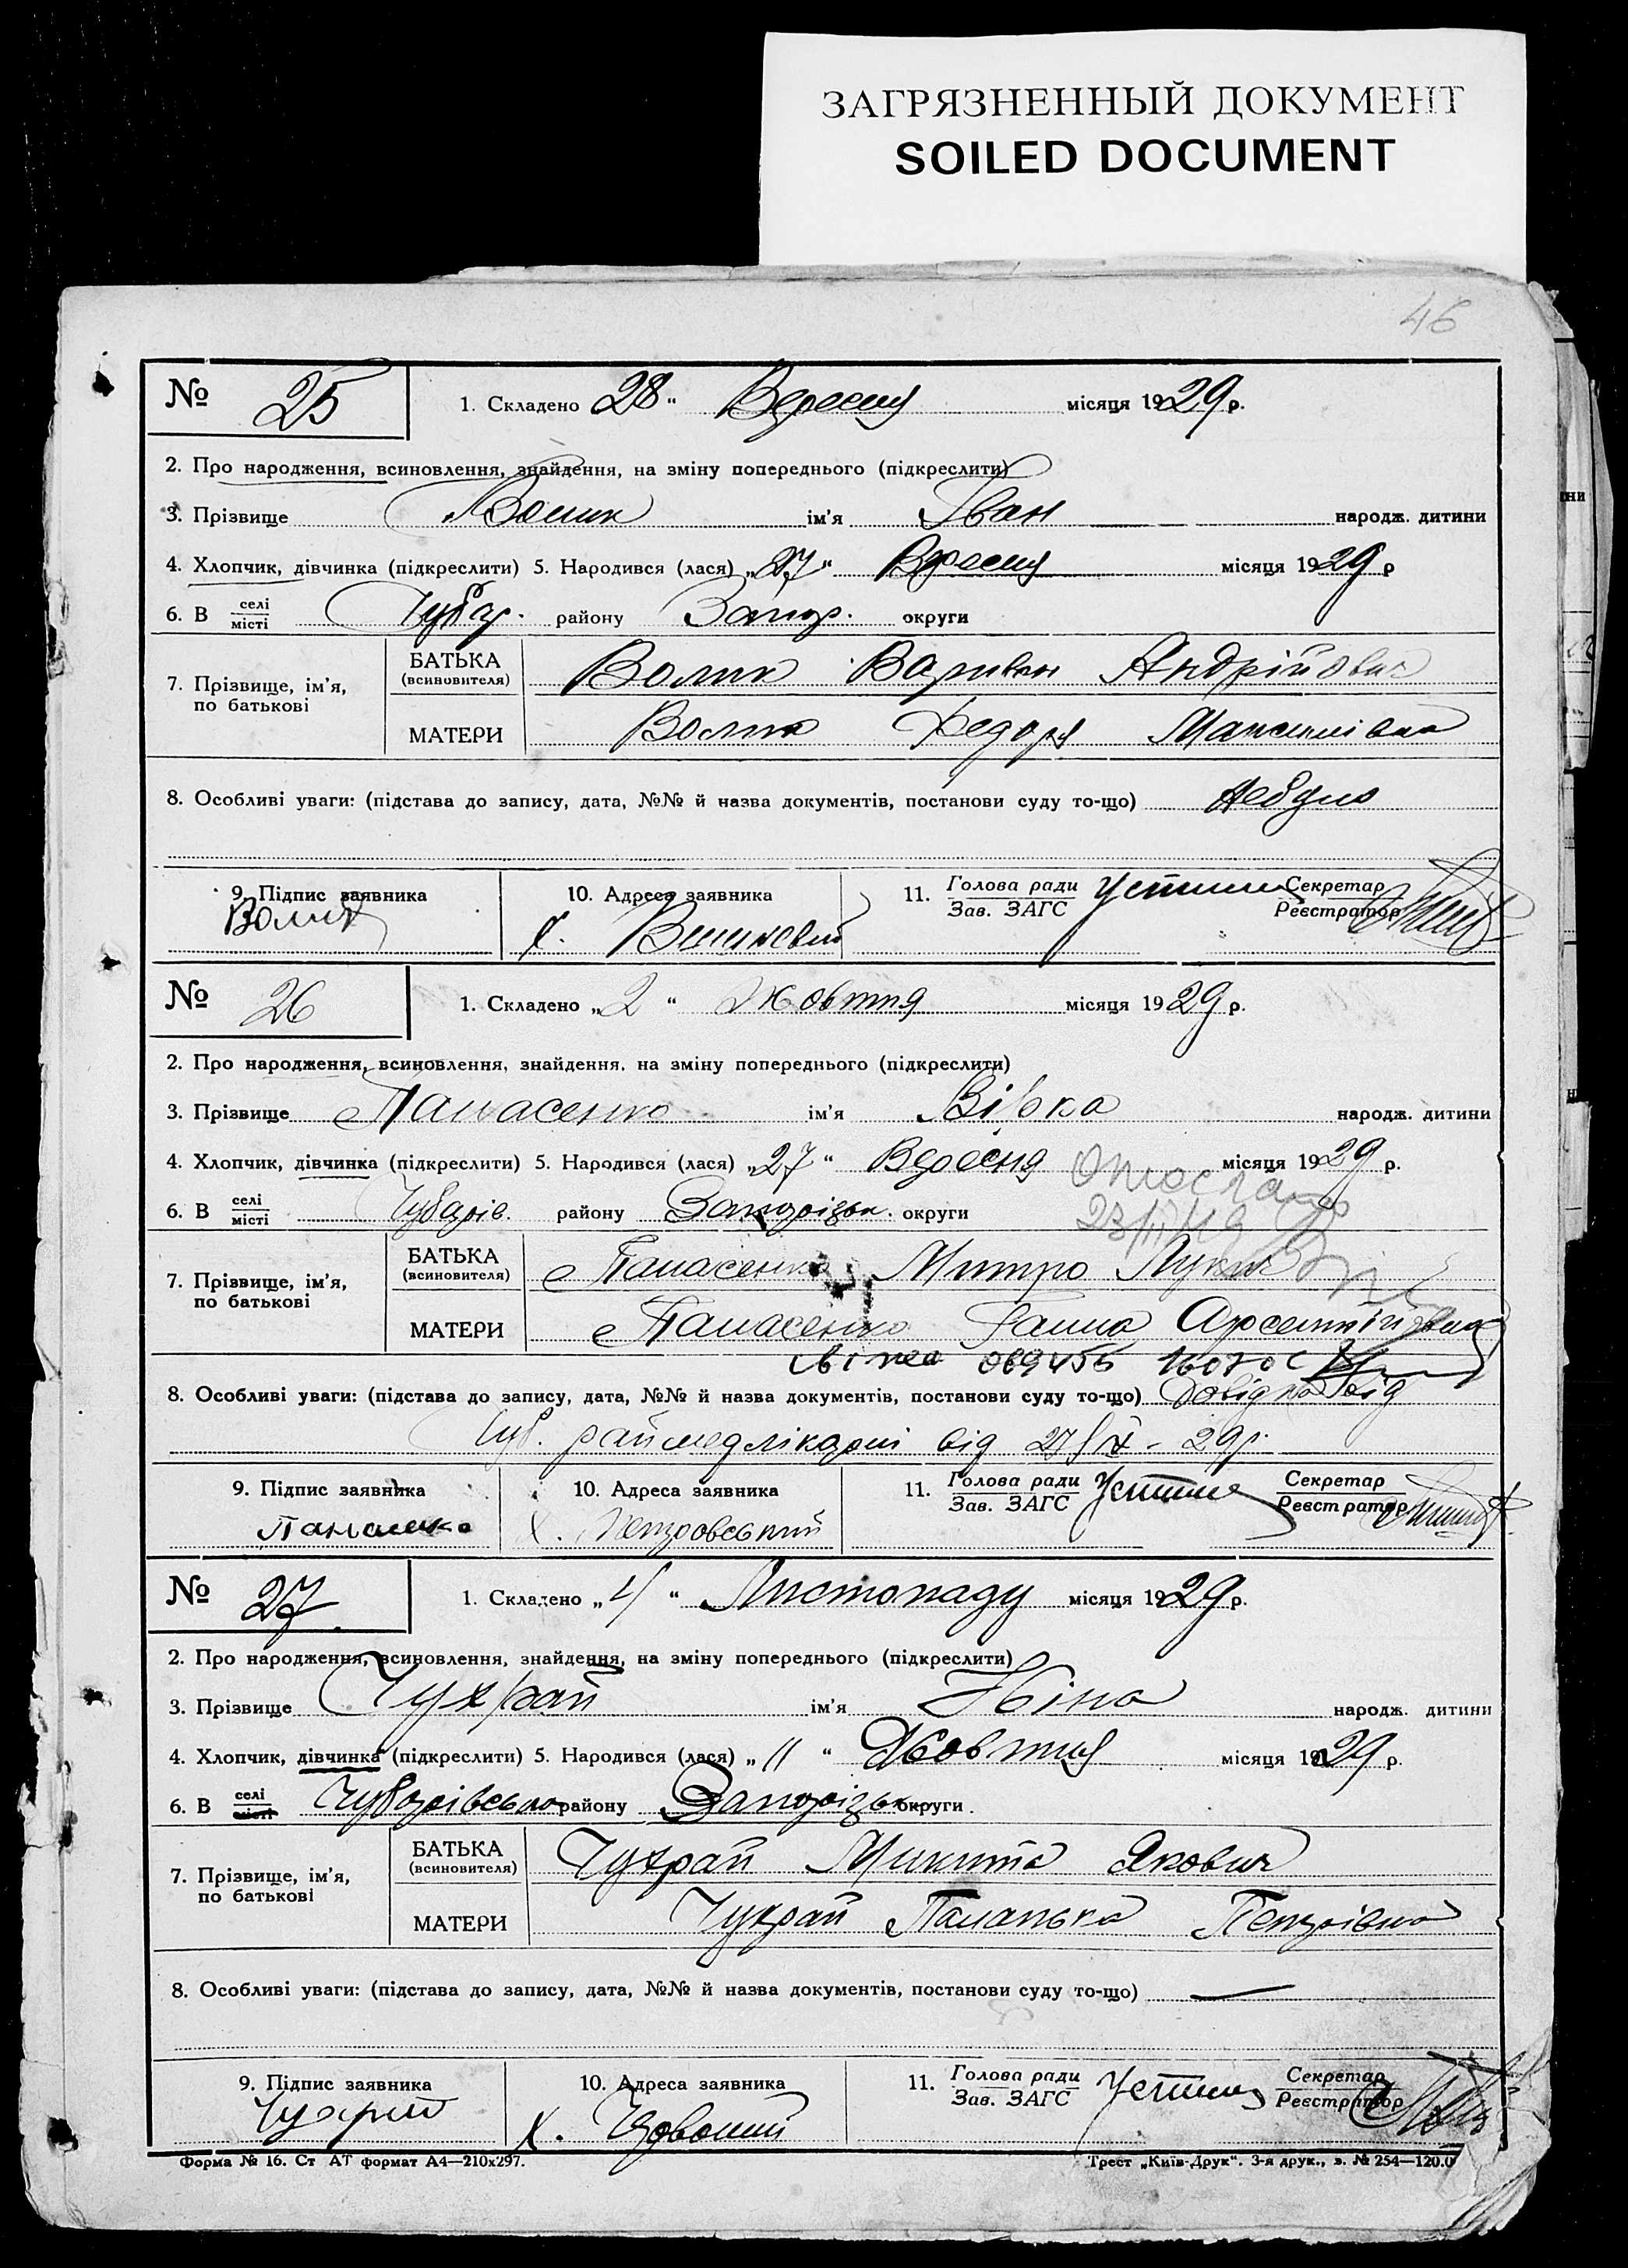 ЗАГРЯЗНЕННЫЙ ДОКУМЕНТ
SOILED DOCUMENT
46
№ 25 1. Складено 28 “ Вересня місяця 1929 р.
2. Про народження, всиновлення, знайдення, на зміну попереднього (підкреслити)
3. Прізвище Волик ім'я Іван народж. дитини
4. Хлопчик, дівчинка (підкреслити) 5. Народився (лася) „27“ Вересня місяця 1929 р
6. В селі місті Чубар. району Запор. округи
7. Прізвище, ім'я, по батькові
БАТЬКА (всиновителя) Волик Андрійович
МАТЕРИ Волик Федора Максимівна
8. Особливі уваги: (підстава до запису, дата, №№ й назва документів, постанови суду то-що)
9. Підпис заявника 10. Адреса заявника 11. Голова ради Зав. ЗАГС Секретар Реєстратор
Волик х.
№ 26 1. Складено „2 “ Жовтня місяця 1929 р.
2. Про народження, всиновлення, знайдення, на зміну попереднього (підкреслити)
3. Прізвище Панасенко ім'я Вірка народж. дитини
4. Хлопчик, дівчинка (підкреслити) 5. Народився (лася) „27 “ Вересня місяця 1929 р.
6. В селі місті Чубарів. району Запорізьк. округи
7. Прізвище, ім'я, по батькові
БАТЬКА (всиновителя) Панасенко Митро Лукич
МАТЕРИ Панасенко Ганна Арсентіївна
8. Особливі уваги: (підстава до запису, дата, №№ й назва документів, постанови суду то-що) Довідка від
Чуб. раймедлікарні від 27/ІХ - 29р.
9. Підпис заявника 10. Адреса заявника 11. Голова ради Зав. ЗАГС Секретар Реєстратор
Панасенко х. Петровський
№ 27 1. Складено „4 “ Листопаду місяця 1929 р.
2. Про народження, всиновлення, знайдення, на зміну попереднього (підкреслити)
3. Прізвище Чухрай ім'я Ніна народж. дитини
4. Хлопчик, дівчинка (підкреслити) 5. Народився (лася) „ 11 “ Жовтня місяця 1929 р.
6. В селі місті Чубарівсько району Запорізьк округи.
7. Прізвище, ім'я, по батькові
БАТЬКА (всиновителя) Чухрай Микита Якович
МАТЕРИ Чухрай Паланька Петрівна
8. Особливі уваги: (підстава до запису, дата, №№ й назва документів, постанови суду то-що) —
9. Підпис заявника 10. Адреса заявника 11. Голова ради Зав. ЗАГС Секретар Реєстратор
х.
Форма № 16. Ст АТ формат А4—210х297. Трест „Київ-Друк“. 3-я друк., з. № 254—120.0